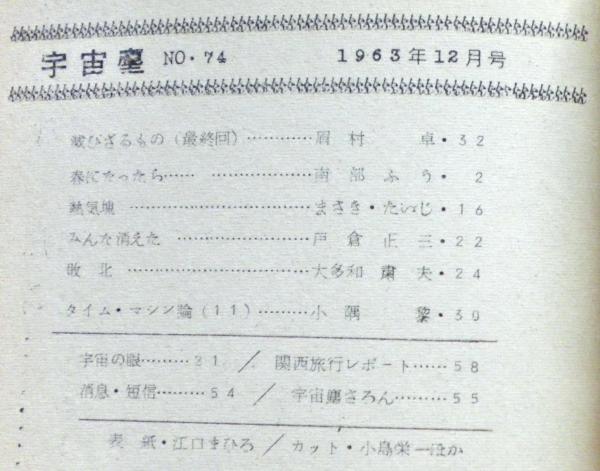 宇宙塵 NO・74 1963年12月号
滅びざるもの（最終回）…………眉村 卓・32
春になったら…… ………………南部ふう・2
熱気塊 ……………………………まさき・たいじ・16
みんな消えた ……………………戸倉正三・22
敗北 ………………………………大多和粛夫・24
タイム・マシン論（11）………小隅 黎・39
宇宙の眼………31／関西旅行レポート……58
消息・短信………54／宇宙塵さろん………55
表紙・江口まひろ／カット・小島栄一ほか